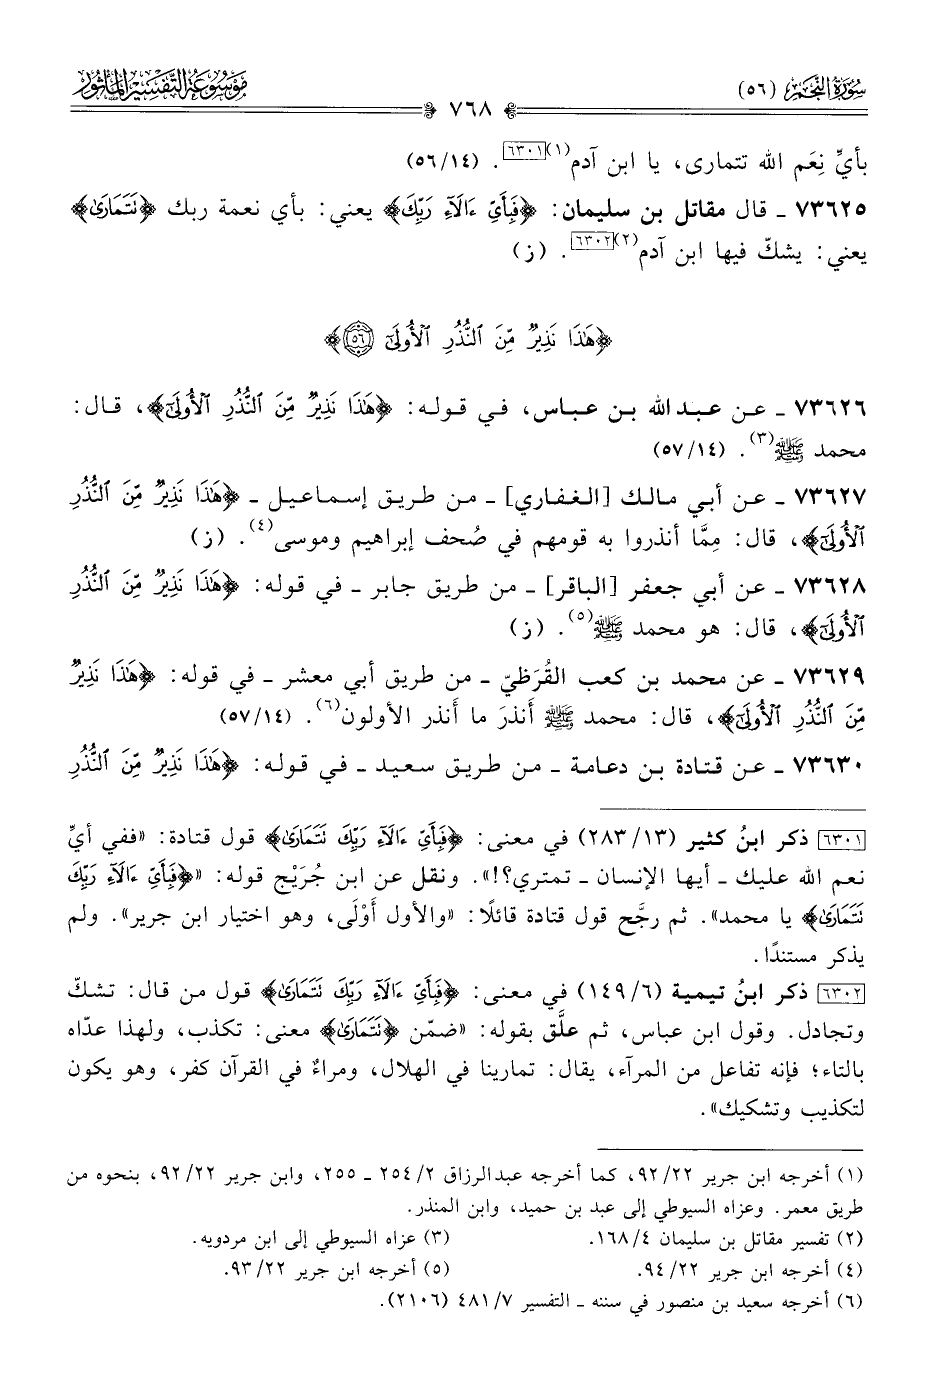 سُورَةُ النَّجْمِ (٥٦)
موسوعة التفسير المأثور
٧٦٨
بأيِّ نِعَم الله تتمارى، يا ابن آدم(١) ٦٣٠١. (١٤/ ٥٦)
٧٣٦٢٥ ـ قال مقاتل بن سليمان: ﴿فَبِأَيِّ ءَالَآءِ رَبِّكَ﴾ يعني: بأي نعمة ربك ﴿نَتَمَارَىٰ﴾
يعني: يشكّ فيها ابن آدم(٢) ٦٣٠٢. (ز)
﴿هَٰذَا نَذِيرٌ مِّنَ ٱلنُّذُرِ ٱلْأُولَىٰٓ ٥٦﴾
٧٣٦٢٦ ـ عن عبد الله بن عباس، في قوله: ﴿هَٰذَا نَذِيرٌ مِّنَ ٱلنُّذُرِ ٱلْأُولَىٰٓ﴾، قال:
محمد ﷺ(٣). (١٤/ ٥٧)
٧٣٦٢٧ ـ عن أبي مالك [الغفاري] ـ من طريق إسماعيل ـ ﴿هَٰذَا نَذِيرٌ مِّنَ ٱلنُّذُرِ
ٱلْأُولَىٰٓ﴾، قال: مِمَّا أنذروا به قومهم في صُحف إبراهيم وموسى(٤). (ز)
٧٣٦٢٨ ـ عن أبي جعفر [الباقر] ـ من طريق جابر ـ في قوله: ﴿هَٰذَا نَذِيرٌ مِّنَ ٱلنُّذُرِ
ٱلْأُولَىٰٓ﴾، قال: هو محمد ﷺ(٥). (ز)
٧٣٦٢٩ ـ عن محمد بن كعب القُرَظيّ ـ من طريق أبي معشر ـ في قوله: ﴿هَٰذَا نَذِيرٌ
مِّنَ ٱلنُّذُرِ ٱلْأُولَىٰٓ﴾، قال: محمد ﷺ أنذرَ ما أَنذر الأولون(٦). (١٤/ ٥٧)
٧٣٦٣٠ ـ عن قتادة بن دعامة ـ من طريق سعيد ـ في قوله: ﴿هَٰذَا نَذِيرٌ مِّنَ ٱلنُّذُرِ
٦٣٠١ ذكر ابنُ كثير (١٣/ ٢٨٣) في معنى: ﴿فَبِأَيِّ ءَالَآءِ رَبِّكَ نَتَمَارَىٰ﴾ قول قتادة: «ففي أيِّ
نعم الله عليك ـ أيها الإنسان ـ تمتري؟!». ونقل عن ابن جُرَيْج قوله: «﴿فَبِأَيِّ ءَالَآءِ رَبِّكَ
نَتَمَارَىٰ﴾ يا محمد». ثم رجَّح قول قتادة قائلًا: «والأول أَوْلَى، وهو اختيار ابن جرير». ولم
يذكر مستندًا.
٦٣٠٢ ذكر ابنُ تيمية (٦/ ١٤٩) في معنى: ﴿فَبِأَيِّ ءَالَآءِ رَبِّكَ نَتَمَارَىٰ﴾ قول من قال: تشكّ
وتجادل. وقول ابن عباس، ثم علَّق بقوله: «ضمّن ﴿نَتَمَارَىٰ﴾ معنى: تكذب، ولهذا عدّاه
بالتاء؛ فإنه تفاعل من المرآء، يقال: تمارينا في الهلال، ومراءٌ في القرآن كفر، وهو يكون
لتكذيب وتشكيك».
(١) أخرجه ابن جرير ٢٢/ ٩٢، كما أخرجه عبدالرزاق ٢/ ٢٥٤ ـ ٢٥٥، وابن جرير ٢٢/ ٩٢، بنحوه من
طريق معمر. وعزاه السيوطي إلى عبد بن حميد، وابن المنذر.
(٢) تفسير مقاتل بن سليمان ٤/ ١٦٨. (٣) عزاه السيوطي إلى ابن مردويه.
(٤) أخرجه ابن جرير ٢٢/ ٩٤. (٥) أخرجه ابن جرير ٢٢/ ٩٣.
(٦) أخرجه سعيد بن منصور في سننه ـ التفسير ٧/ ٤٨١ (٢١٠٦).